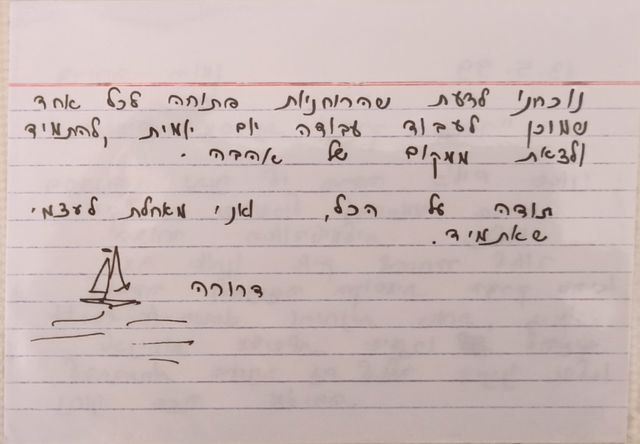 נוכחתי לדעת שהרוחניות פתוחה לכל אחד
שמוכן לעבוד עבודה יום יומית, להתמיד
ולצאת ממקום של אהבה.
תודה על הכל, ואני מאחלת לעצמי
שאתמיד.
דרורה